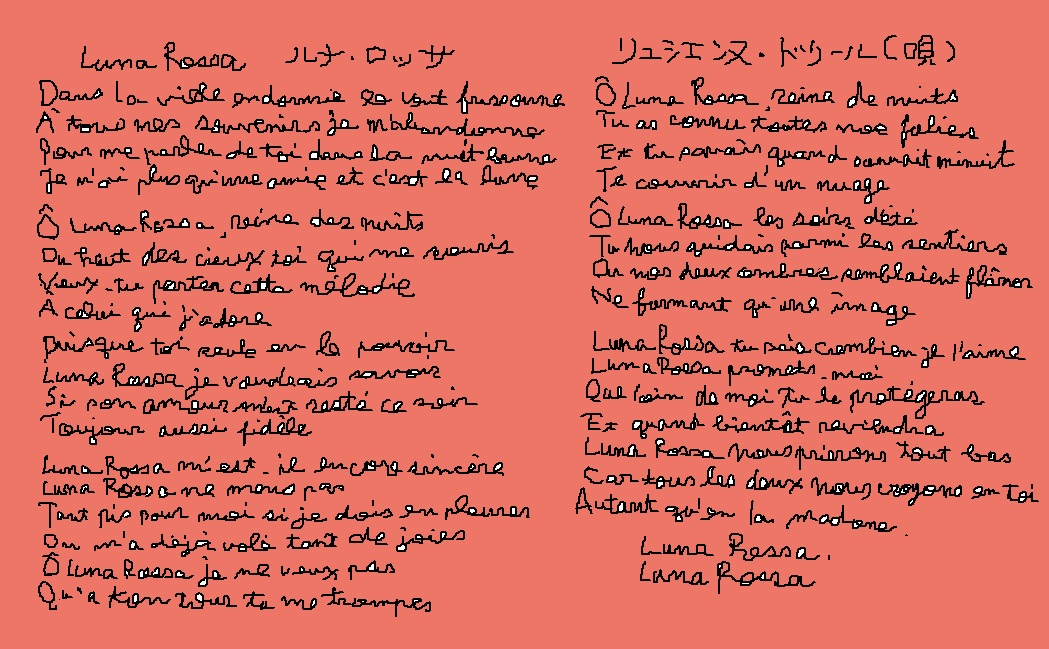 Luna Rossa ルナ・ロッサ
Dans la ville endormie le vent frissonne
À tous mes souvenirs je m'abandonne
Pour me parler de toi dans la nuit brune
Je n'ai plus qu'une amie et c'est la lune
Ô Luna Rossa, reine des nuits
Du haut des cieux toi qui me souris
Veux-tu porter cette mélodie
A celui que j'adore
Puisque toi seule en le pouvoir
Luna Rossa je voudrais savoir
Si son amour m'est resté ce soir
Toujour aussi fidèle
Luna Rossa m'est-il encore sincère
Luna Rossa ne mens pas
Tant pis pour moi si je dois en pleurer
On m'a déjà volé tant de joies
Ô Luna Rossa je ne veux pas
Qu'a ton tour tu me trompes
リュシエンヌ・ドゥール(唄)
Ô Luna Rossa, reine de nuits
Tu as connu toutes nos folies
Et tu savais quand sonnait minuit
Te couvrir d'un nuage
Ô Luna Rossa les soirs d'été
Tu nous guidais parmi les sentiers
Ou nos deux ombres semblaient flâner
Ne formant qu'une image
Luna Rossa tu sais combien je l'aime
Luna Rossa promets-moi
Que loin de moi tu le protégeras
Et quand bientôt reviendra
Luna Rossa nous prierons tout bas
Car tous les deux nous croyons en toi
Autant qu'en la madone.
Luna Rossa.
Luna Rossa